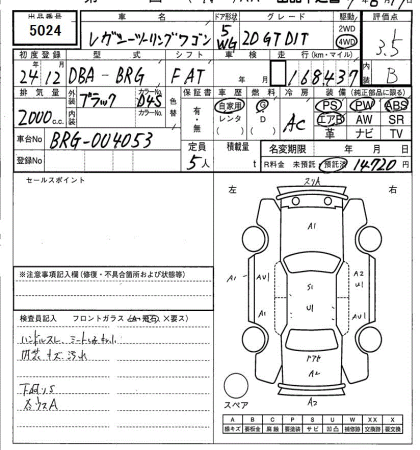 出品番号 車名 ドア形状 グレード 駆動 評価点
5024 レガシーツーリングワゴン 5 WG 2.0 GT DIT 2WD 4WD 3.5
初度登録 型式 シフト 車検 走行(km・マイル) 内装
24年12月 DBA-BRG FAT 年 月 168437 B
排気量 外装 カラーNo. 色替 保証書 車歴 燃料 冷房 装備(純正部品に限る)
2000c.c. ブラック D4S 有・無 自家用 G AC PS PW ABS
内装 カラーNo. レンタ D エアB AW SR
革 ナビ TV
車台No BRG-004053 定員 積載量 名変期限 年 月 日
登録No 5人 t R料金 未預託 預託済 14720円
セールスポイント
左 右
スリA
A1
A1 AU1 S1 A2 U1 A1
U1
A2
A2
スペア
※注意事項記入欄(修復・不具合箇所および状態等)
検査員記入 フロントガラス ×要ス)
ハンドルスレ
内装キズ汚れ
下廻りS
A B C P S U W X XX X
線キズ 要板金 腐蝕 要塗装 サビ 凹凸 補修跡 交換跡 要交換